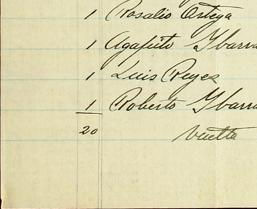 1 Rosalio Ortega
1 Agapito Ybarra
1 Luis Reyes
1 Roberto Ybarra
20 Vuelta